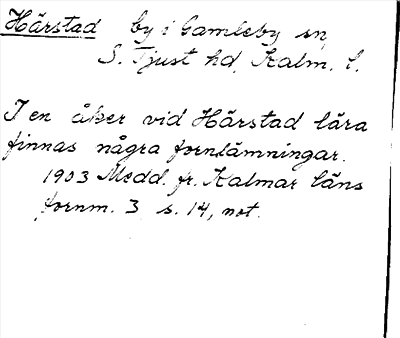 Hårstad by i Gamleby sn,
S. Tjust hd, Kalm. l.
I en åker vid Hårstad lära
finnas några fornlämningar.
1903 Medd. fr. Kalmar läns
fornm. 3 s. 14, not.